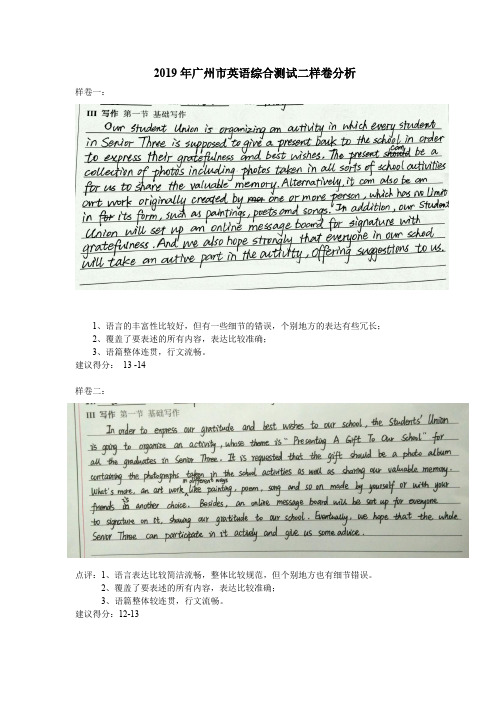 2019年广州市英语综合测试二样卷分析
样卷一：
III 写作 第一节 基础写作
Our Student Union is organizing an activity in which every student
in Senior Three is supposed to give a present back to the school in order
to express their gratefulness and best wishes. The present should can be a
collection of photos including photos taken in all sorts of school activities
for us to share the valuable memory. Alternatively, it can also be an
art work originally created by one or more person, which has no limit
in for its form, such as paintings, poets and songs. In addition, our Student
Union will set up an online message board for signature with
gratefulness. And we also hope strongly that everyone in our school
will take an active part in the activity, offering suggestions to us.
1、语言的丰富性比较好，但有一些细节的错误，个别地方的表达有些冗长；
2、覆盖了要表述的所有内容，表达比较准确；
3、语篇整体连贯，行文流畅。
建议得分： 13 -14
样卷二：
III 写作 第一节 基础写作
In order to express our gratitude and best wishes to our school, the Students' Union
is going to organize an activity, whose theme is "Presenting A Gift To Our School" for
all the graduates in Senior Three. It is requested that the gift should be a photo album
containing the photographs taken in the school activities as well as sharing our valuable memory.
What's more, an art work in different ways like painting, poem, song and so on made by yourself or with your
friends is another choice. Besides, an online message board will be set up for everyone
to signature on it, showing our gratitude to our school. Eventually, we hope that the whole
Senior Three can participate in it actively and give us some advice.
点评：1、语言表达比较简洁流畅，整体比较规范，但个别地方也有细节错误。
2、覆盖了要表述的所有内容，表达比较准确；
3、语篇整体较连贯，行文流畅。
建议得分：12-13